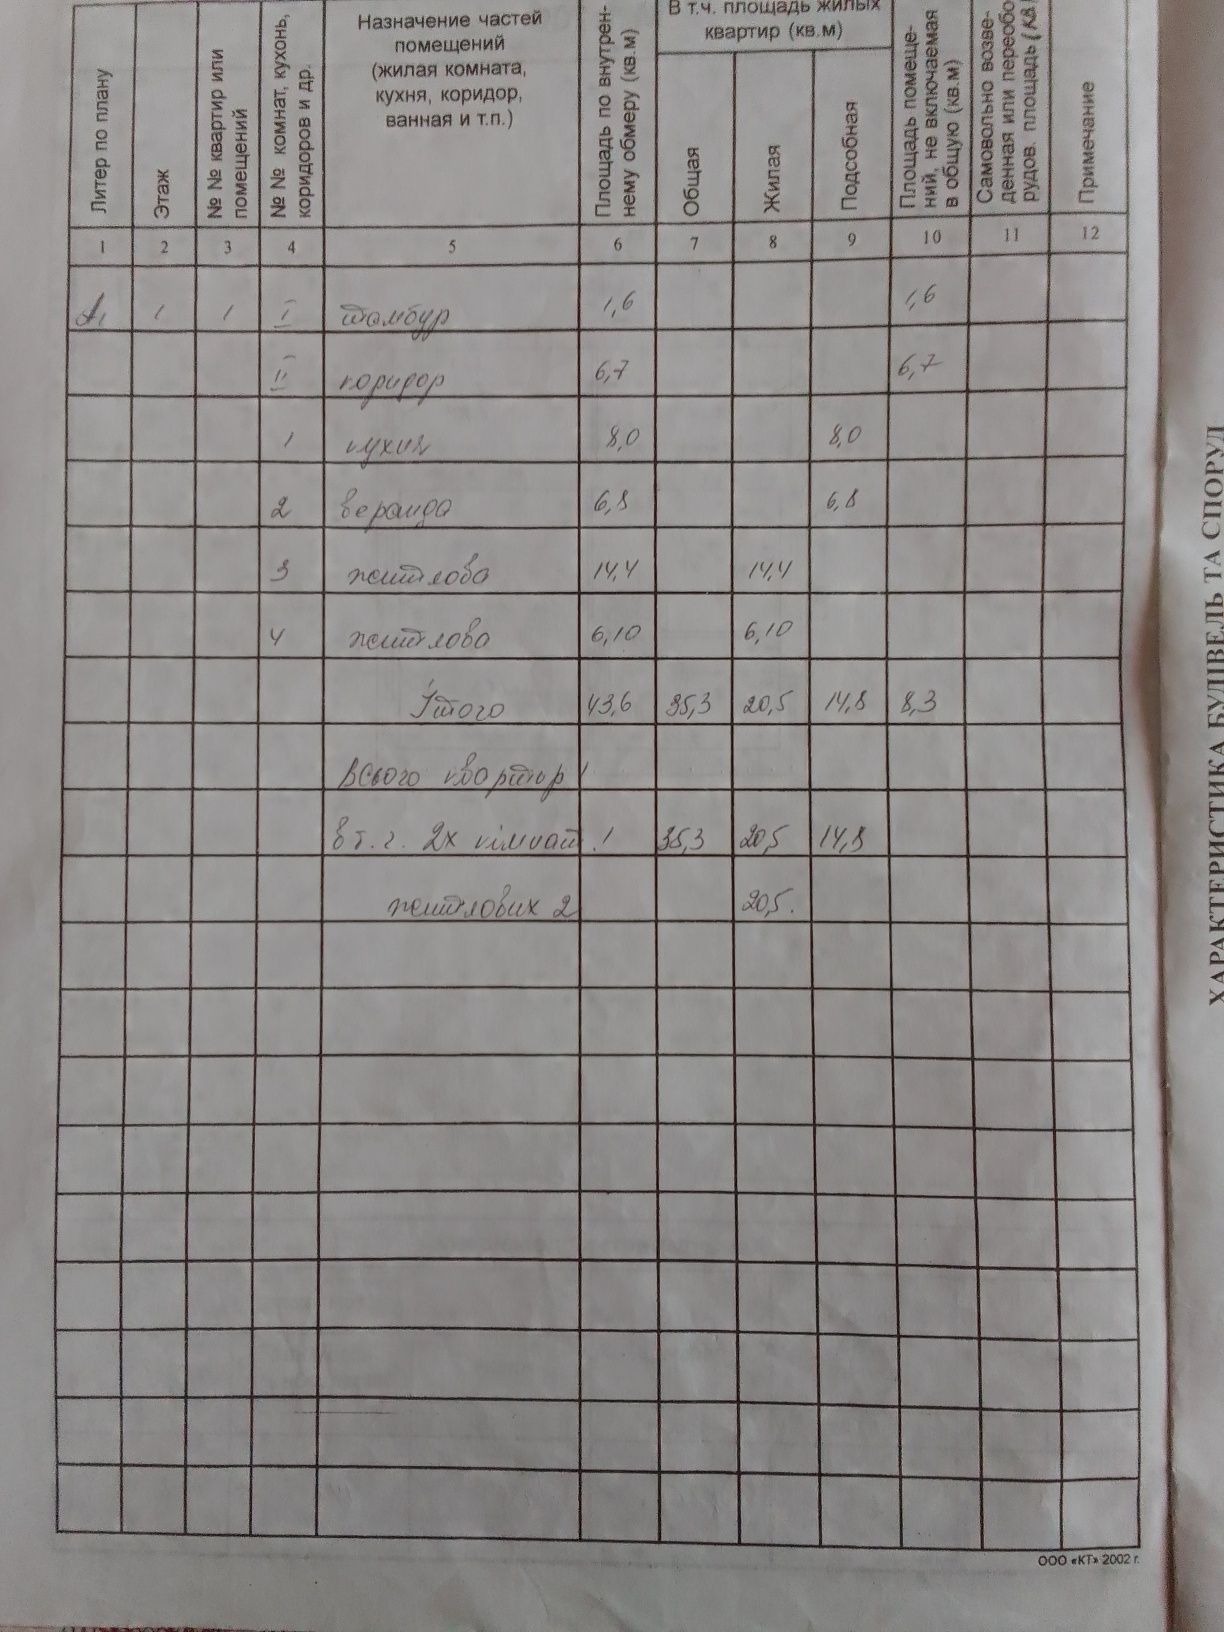 Литер по плану
Этаж
№ № квартир или
помещений
№ № комнат, кухонь,
коридоров и др.
Назначение частей
помещений
(жилая комната,
кухня, коридор,
ванная и т.п.)
Площадь по внутрен-
нему обмеру (кв.м)
В т.ч. площадь жилых
квартир (кв.м)
Общая
Жилая
Подсобная
Площадь помеще-
ний, не включаемая
в общую (кв.м)
Самовольно возве-
денная или переобо
рудов. площадь (кв
Примечание
1 2 3 4 5 6 7 8 9 10 11 12
1 1 I тамбур 1,6 1,6
II коридор 6,7 6,7
1 кухня 8,0 8,0
2 веранда 6,8 6,8
3 житлова 14,4 14,4
4 житлова 6,10 6,10
Итого 43,6 35,3 20,5 14,8 8,3
Всього квартир 1
в т. ч. 2х кімнат. 1 35,3 20,5 14,8
житлових 2 20,5.
ООО «КТ» 2002 г.
ХАРАКТЕРИСТИКА БУДІВЕЛЬ ТА СПОРУД